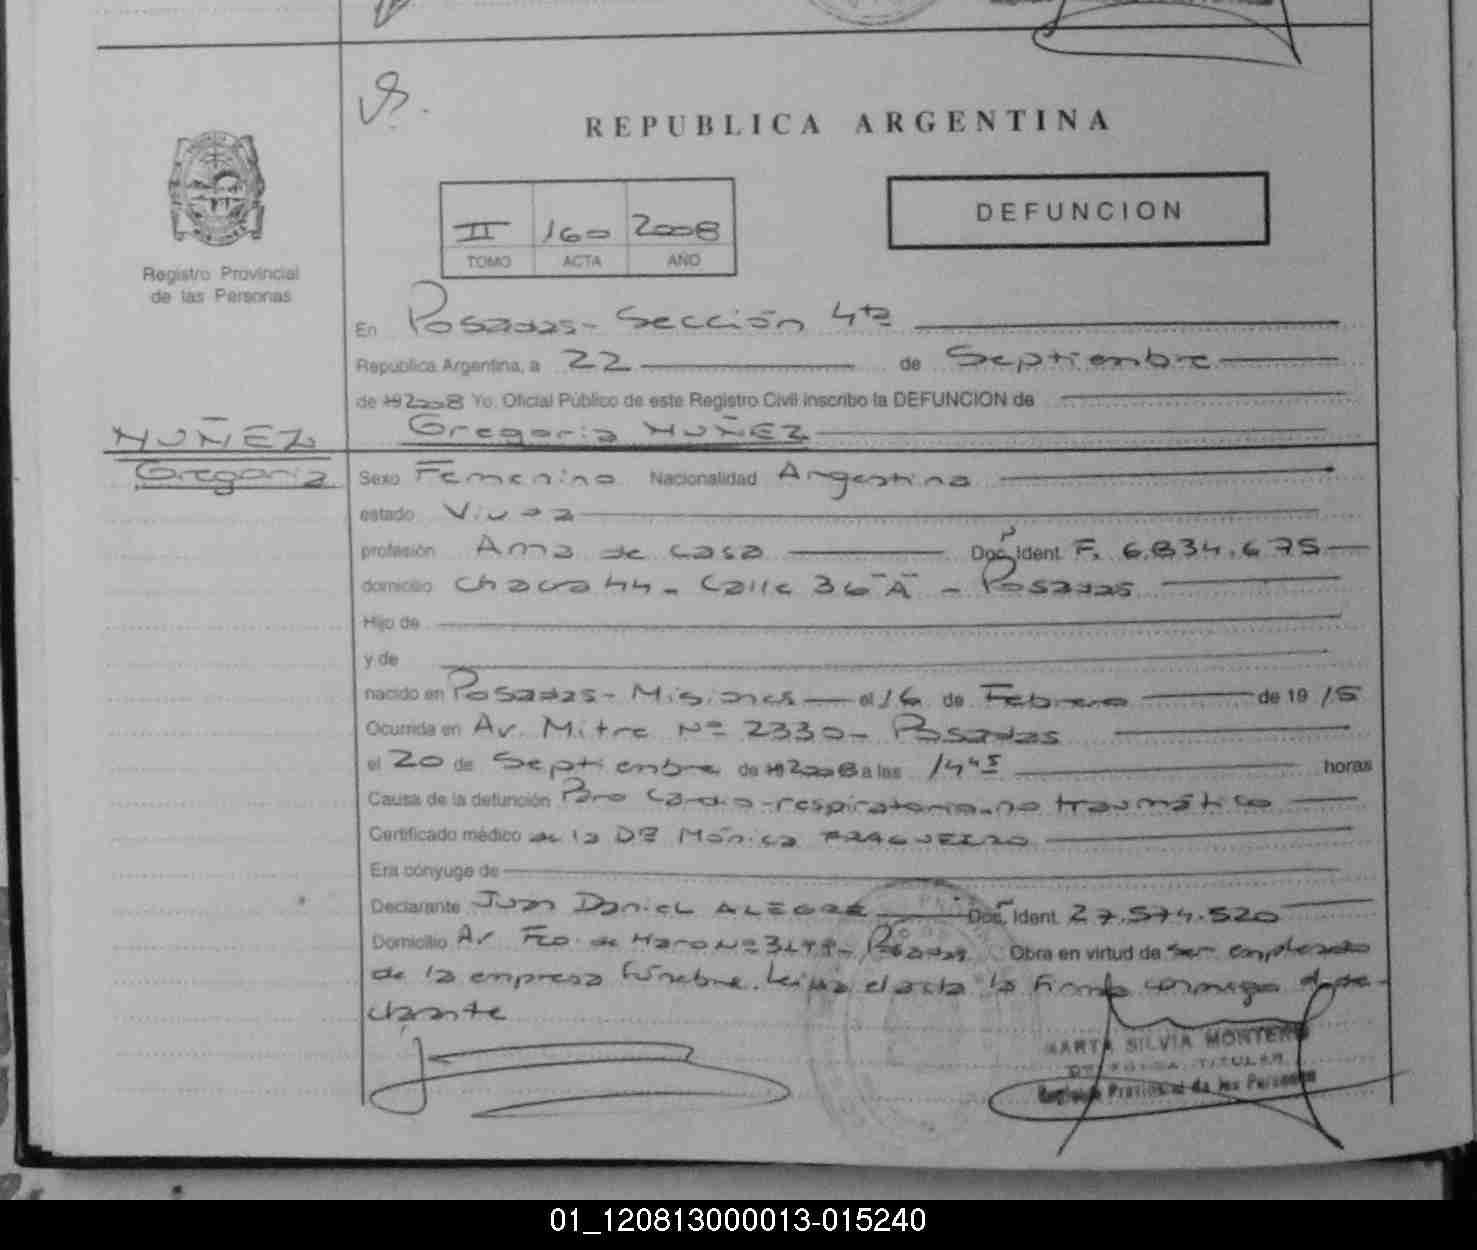 REPUBLICA ARGENTINA
DEFUNCION
II 160 2008
TOMO ACTA AÑO
Registro Provincial
de las Personas
En Posadas- Sección 4ta
Republica Argentina, a 22 de Septiembre
de 19 2008 Yo, Oficial Público de este Registro Civil inscribo la DEFUNCION de
NUÑEZ
Gregoria
Gregoria NUÑEZ
Sexo Femenino Nacionalidad Argentina
estado Viuda
profesión Ama de casa Doc. Ident. F. 6.834.675
domicilio Chacra 44 - Calle 36 "A" - Posadas
Hijo de
y de
nacido en Posadas - Misiones el 16 de Febrero de 19 15
Ocurrida en Av. Mitre Nº 2330- Posadas
el 20 de Septiembre de 19 2008 a las 14 45 horas
Causa de la defunción Paro Cardio-respiratorio-no traumático
Certificado médico de la DRA Mónica FRAGUEIRO
Era cónyuge de
Declarante Juan Daniel ALEGRE Doc. Ident. 27.574.520
Domicilio Av Fco. de Haro Nº Posadas Obra en virtud de ser empleado
de la empresa fúnebre. Leída el acta la firma conmigo el de-
clarante
MARTA SILVIA MONTERO
TITULAR
Registro Provincial de las Personas
01_120813000013-015240